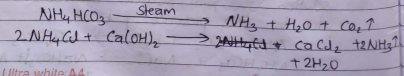 NH4HCO3 —Steam→ NH3 + H2O + CO2↑
2NH4Cl + Ca(OH)2 → ~~2NH4Cl +~~ CaCl2 + 2NH3↑
+ 2H2O
Ultra white A4